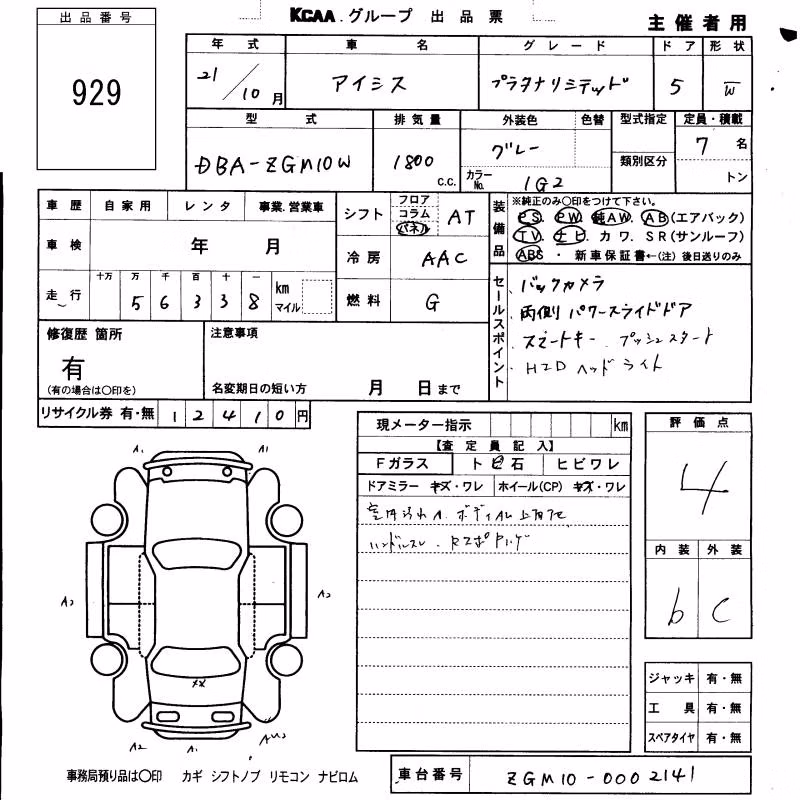 出品番号
929
KCAA.グループ 出品票
主催者用
年式 車名 グレード ドア 形状
21/10月 アイシス プラタナリミテッド 5 W
型式 排気量 外装色 色替 型式指定 定員・積載
DBA-ZGM10W 1800 c.c. グレー 7名
類別区分
カラーNo. 1G2 トン
車歴 自家用 レンタ 事業.営業車
シフト フロア コラム パネル AT
車検 年 月
冷房 AAC
走行 十万 万 千 百 十 一
5 6 3 3 8 km マイル
燃料 G
装備品
※純正のみ〇印をつけて下さい。
PS. PW. 純AW. AB(エアバック)
TV. ナビ. カワ. SR(サンルーフ)
ABS ・ 新車保証書←(注) 後日送りのみ
セールスポイント
バックカメラ
両側パワースライドドア
スマートキー プッシュスタート
HID ヘッドライト
修復歴 箇所
有
(有の場合は〇印を)
注意事項
名変期日の短い方 月 日まで
リサイクル券 有・無 12410円
現メーター指示 km
【査定員記入】
Fガラス トビ石 ヒビワレ
ドアミラー キズ・ワレ ホイール(CP) キズ・ワレ
ハンドルスレ
評価点
4
内装 外装
b C
A1 A1
A2 A2
A2 A1
ジャッキ 有・無
工具 有・無
スペアタイヤ 有・無
事務局預り品は〇印 カギ シフトノブ リモコン ナビロム
車台番号 ZGM10-0002141